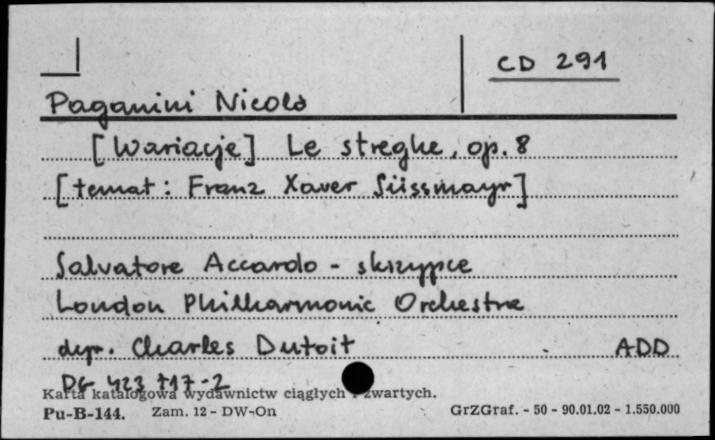 CD 291
Paganini Nicolo
[Wariacje] Le streghe, op. 8
[temat: Franz Xaver Süssmayr]
Salvatore Accardo - skrzypce
London Philharmonic Orchestra
dyr. Charles Dutoit ADD
DG 423 717-2
Karta katalogowa wydawnictw ciągłych i zwartych.
Pu-B-144. Zam. 12 - DW-On GrZGraf. - 50 - 90.01.02 - 1.550.000